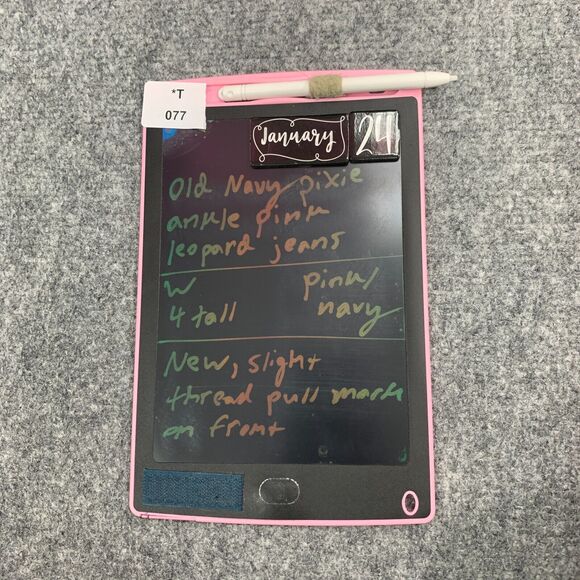 *T
077
January 24
Old Navy pixie
ankle pink
leopard jeans
W pink/
4 tall navy
New, slight
thread pull mark
on front